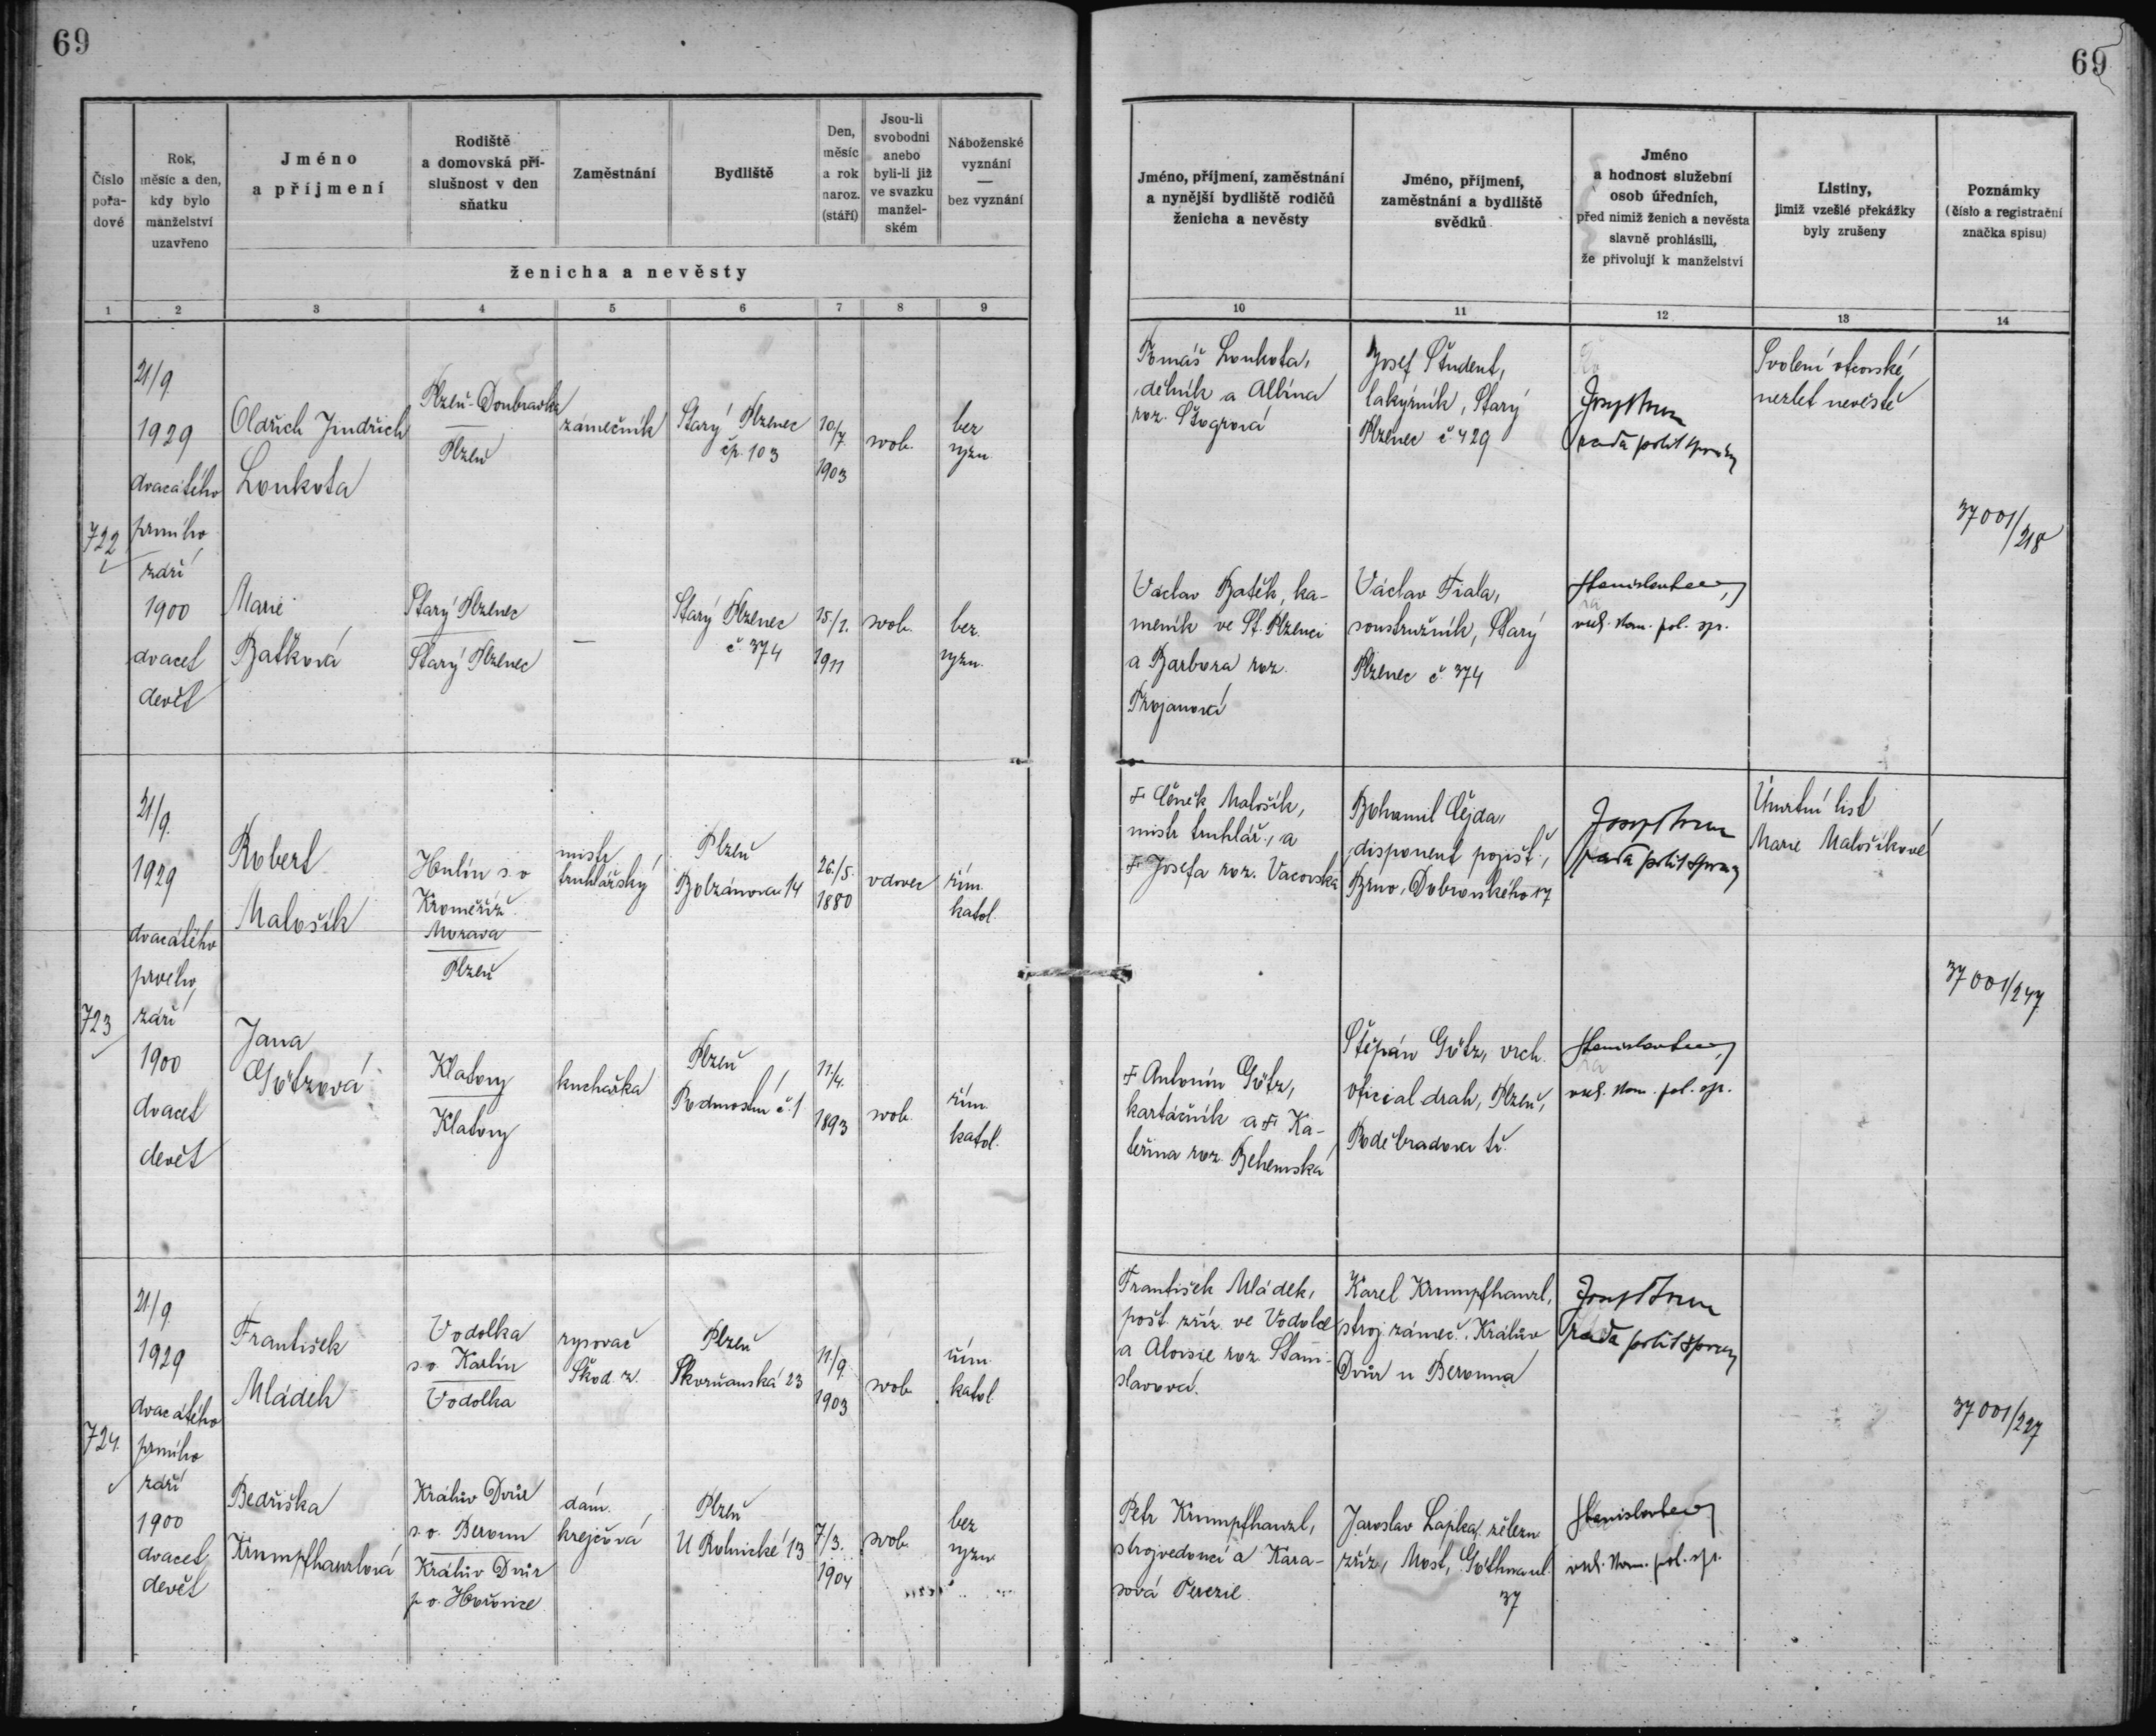 69
69
Číslo
pořa-
dové
Rok,
měsíc a den,
kdy bylo
manželství
uzavřeno
Jméno
a příjmení
Rodiště
a domovská pří-
slušnost v den
sňatku
Zaměstnání
Bydliště
Den,
měsíc
a rok
naroz.
(stáří)
Jsou-li
svobodni
anebo
byli-li již
ve svazku
manžel-
ském
Náboženské
vyznání
—
bez vyznání
ženicha a nevěsty
Jméno, příjmení, zaměstnání
a nynější bydliště rodičů
ženicha a nevěsty
Jméno, příjmení,
zaměstnání a bydliště
svědků
Jméno
a hodnost služební
osob úředních,
před nimiž ženich a nevěsta
slavně prohlásili,
že přivolují k manželství
Listiny,
jimiž vzešlé překážky
byly zrušeny
Poznámky
(číslo a registrační
značka spisu)
1 2 3 4 5 6 7 8 9
10 11 12 13 14
722
21/9.
1929
dvacátého
prvního
září
1900
dvacet
devět
Oldřich Jindřich
Loukota
Plzeň-Doubravka
Plzeň
zámečník
Starý Plzenec
čp. 103
10/7.
1903
svob.
bez
vyzn.
Tomáš Loukota,
dělník a Albína
roz.
Josef Študent,
lakýrník, Starý
Plzenec č 429
rada polit správy
Svolení otcovské
nezlet nevěstě
37001/218
Marie
Batková
Starý Plzenec
Starý Plzenec
—
Starý Plzenec
č. 374
15./1.
1911
svob.
bez
vyzn.
Václav Batěk, ka-
meník ve St. Plzenci
a Barbora roz.
Trojanová
Václav Fiala,
soustružník, Starý
Plzenec č. 374
pol. spr.
723
21/9.
1929
dvacátého
prvého
září
1900
dvacet
devět
Robert
Malošík
Hulín s. o
Kroměříž
Morava
Plzeň
mistr
truhlářský
Plzeň
Bolzánova 14
26./5.
1880
vdovec
řím.
katol.
Čeněk Malošík,
mistr truhlář., a
Josefa roz. Vacovská
Bohumil Čejda,
disponent pojišť.,
Brno, Dobrovského 17
rada polit správy
Úmrtní list
Marie Malošíkové
37001/247
Jana
Götzová
Klatovy
Klatovy
kuchařka
Plzeň
Podmostní č. 1
11/4.
1893
svob.
řím.
katol.
Antonín Götz,
kartáčník a Ka-
teřina roz. Behemská
Štěpán Götz, vrch.
oficial drah, Plzeň,
Poděbradova tř.
pol. spr.
724
21/9.
1929
dvacátého
prvního
září
1900
dvacet
devět
František
Mládek
Vodolka
s. o. Karlín
Vodolka
rysovač
Škod. z.
Plzeň
Skvrňanská 23
11/9.
1903
svob.
řím.
katol.
František Mládek,
pošt. zříz. ve Vodolce
a Aloisie roz. Stani-
slavová.
Karel Krumpfhanzl,
stroj. zámeč. Králův
Dvůr u Berouna
rada polit správy
37001/227
Bedřiška
Krumpfhanzlová
Králův Dvůr
s. o. Beroun
Králův Dvůr
p. o. Hořovice
dám.
krejčová
Plzeň
U Rolnické 13
7./3.
1904
svob.
bez
vyzn.
Petr Krumpfhanzl,
strojvedoucí a Kara-
sová Terezie
Jaroslav Lapka, železn.
zříz., Most,
37
pol. spr.